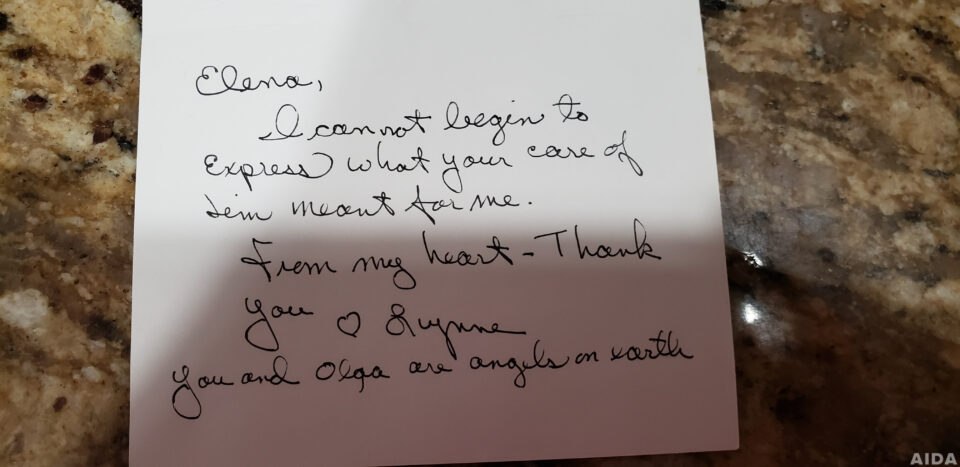 Elena,
I cannot begin to
Express what your care of
Jim meant for me.
From my heart - Thank
You ♡ Lynne
You and Olga are angels on earth
AIDA